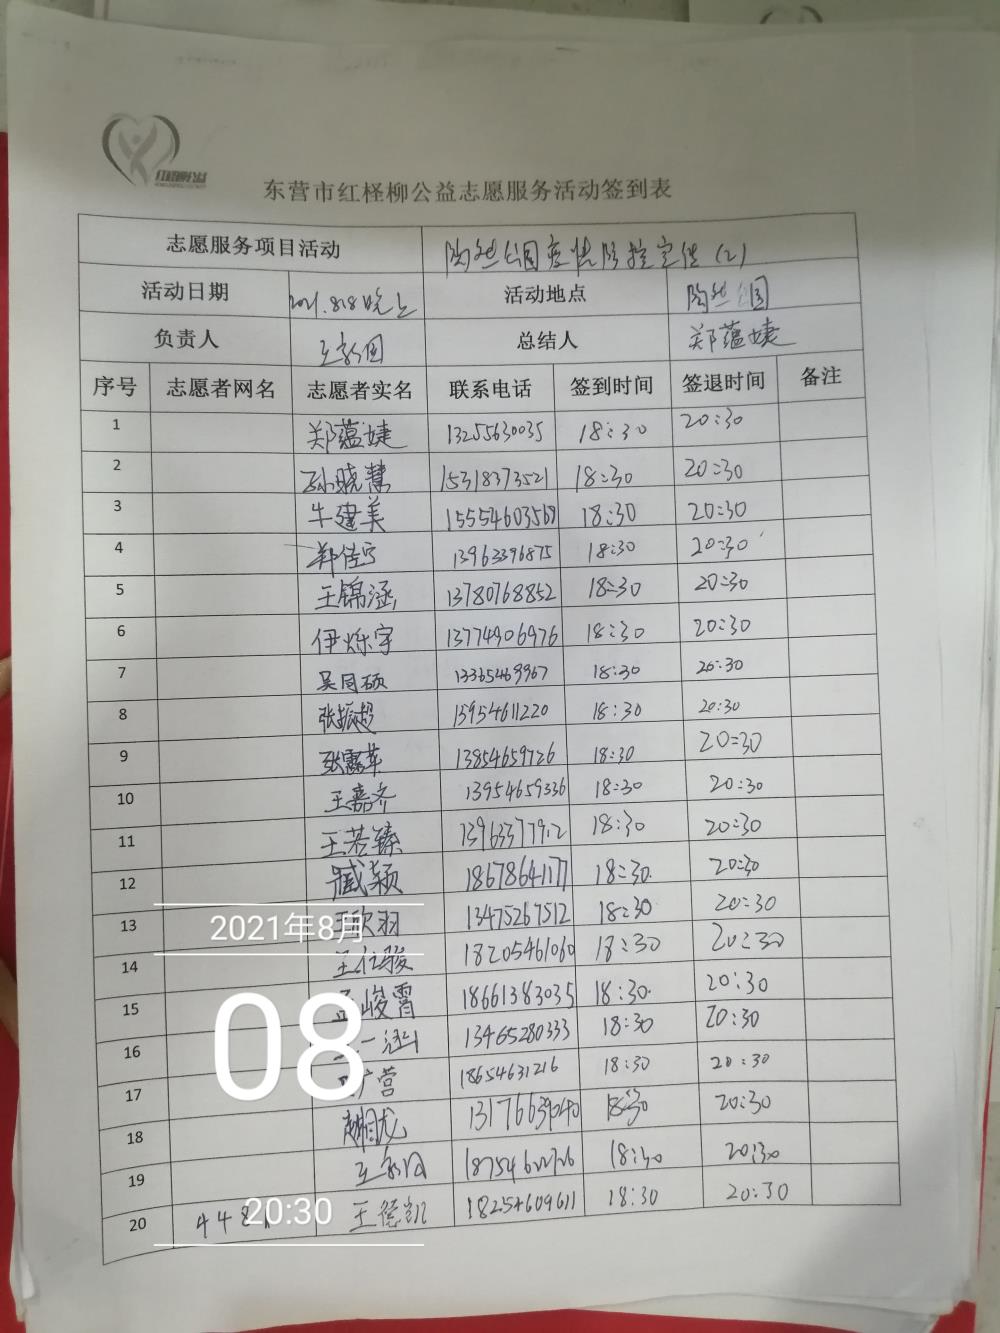 东营市红柽柳公益志愿服务活动签到表
志愿服务项目活动 陶然公园疫情防控宣传(2)
活动日期 2021.8.8晚上 活动地点 陶然公园
负责人 王新国 总结人 郑蕴婕
序号 志愿者网名 志愿者实名 联系电话 签到时间 签退时间 备注
1 郑蕴婕 13255630035 18:30 20:30
2 孙晓慧 15318373521 18:30 20:30
3 牛建美 15554603568 18:30 20:30
4 郑佳宁 13963396875 18:30 20:30
5 王锦涵 13780768852 18:30 20:30
6 伊烁宇 13774906976 18:30 20:30
7 吴同硕 13365469967 18:30 20:30
8 张振超 15954611220 18:30 20:30
9 张露苹 13854659726 18:30 20:30
10 王嘉齐 13954659336 18:30 20:30
11 王若臻 13963377912 18:30 20:30
12 臧颖 18678641177 18:30 20:30
13 王欣羽 13475267512 18:30 20:30
2021年8月
14 王仁骏 18205461060 18:30 20:30
15 峻霄 18661383035 18:30 20:30
08
16 一涵 13465280333 18:30 20:30
17 广营 18654631216 18:30 20:30
18 龙 18:30 20:30
19 王新国 18:30 20:30
20 448 王德凯 18254609611 18:30 20:30
20:30